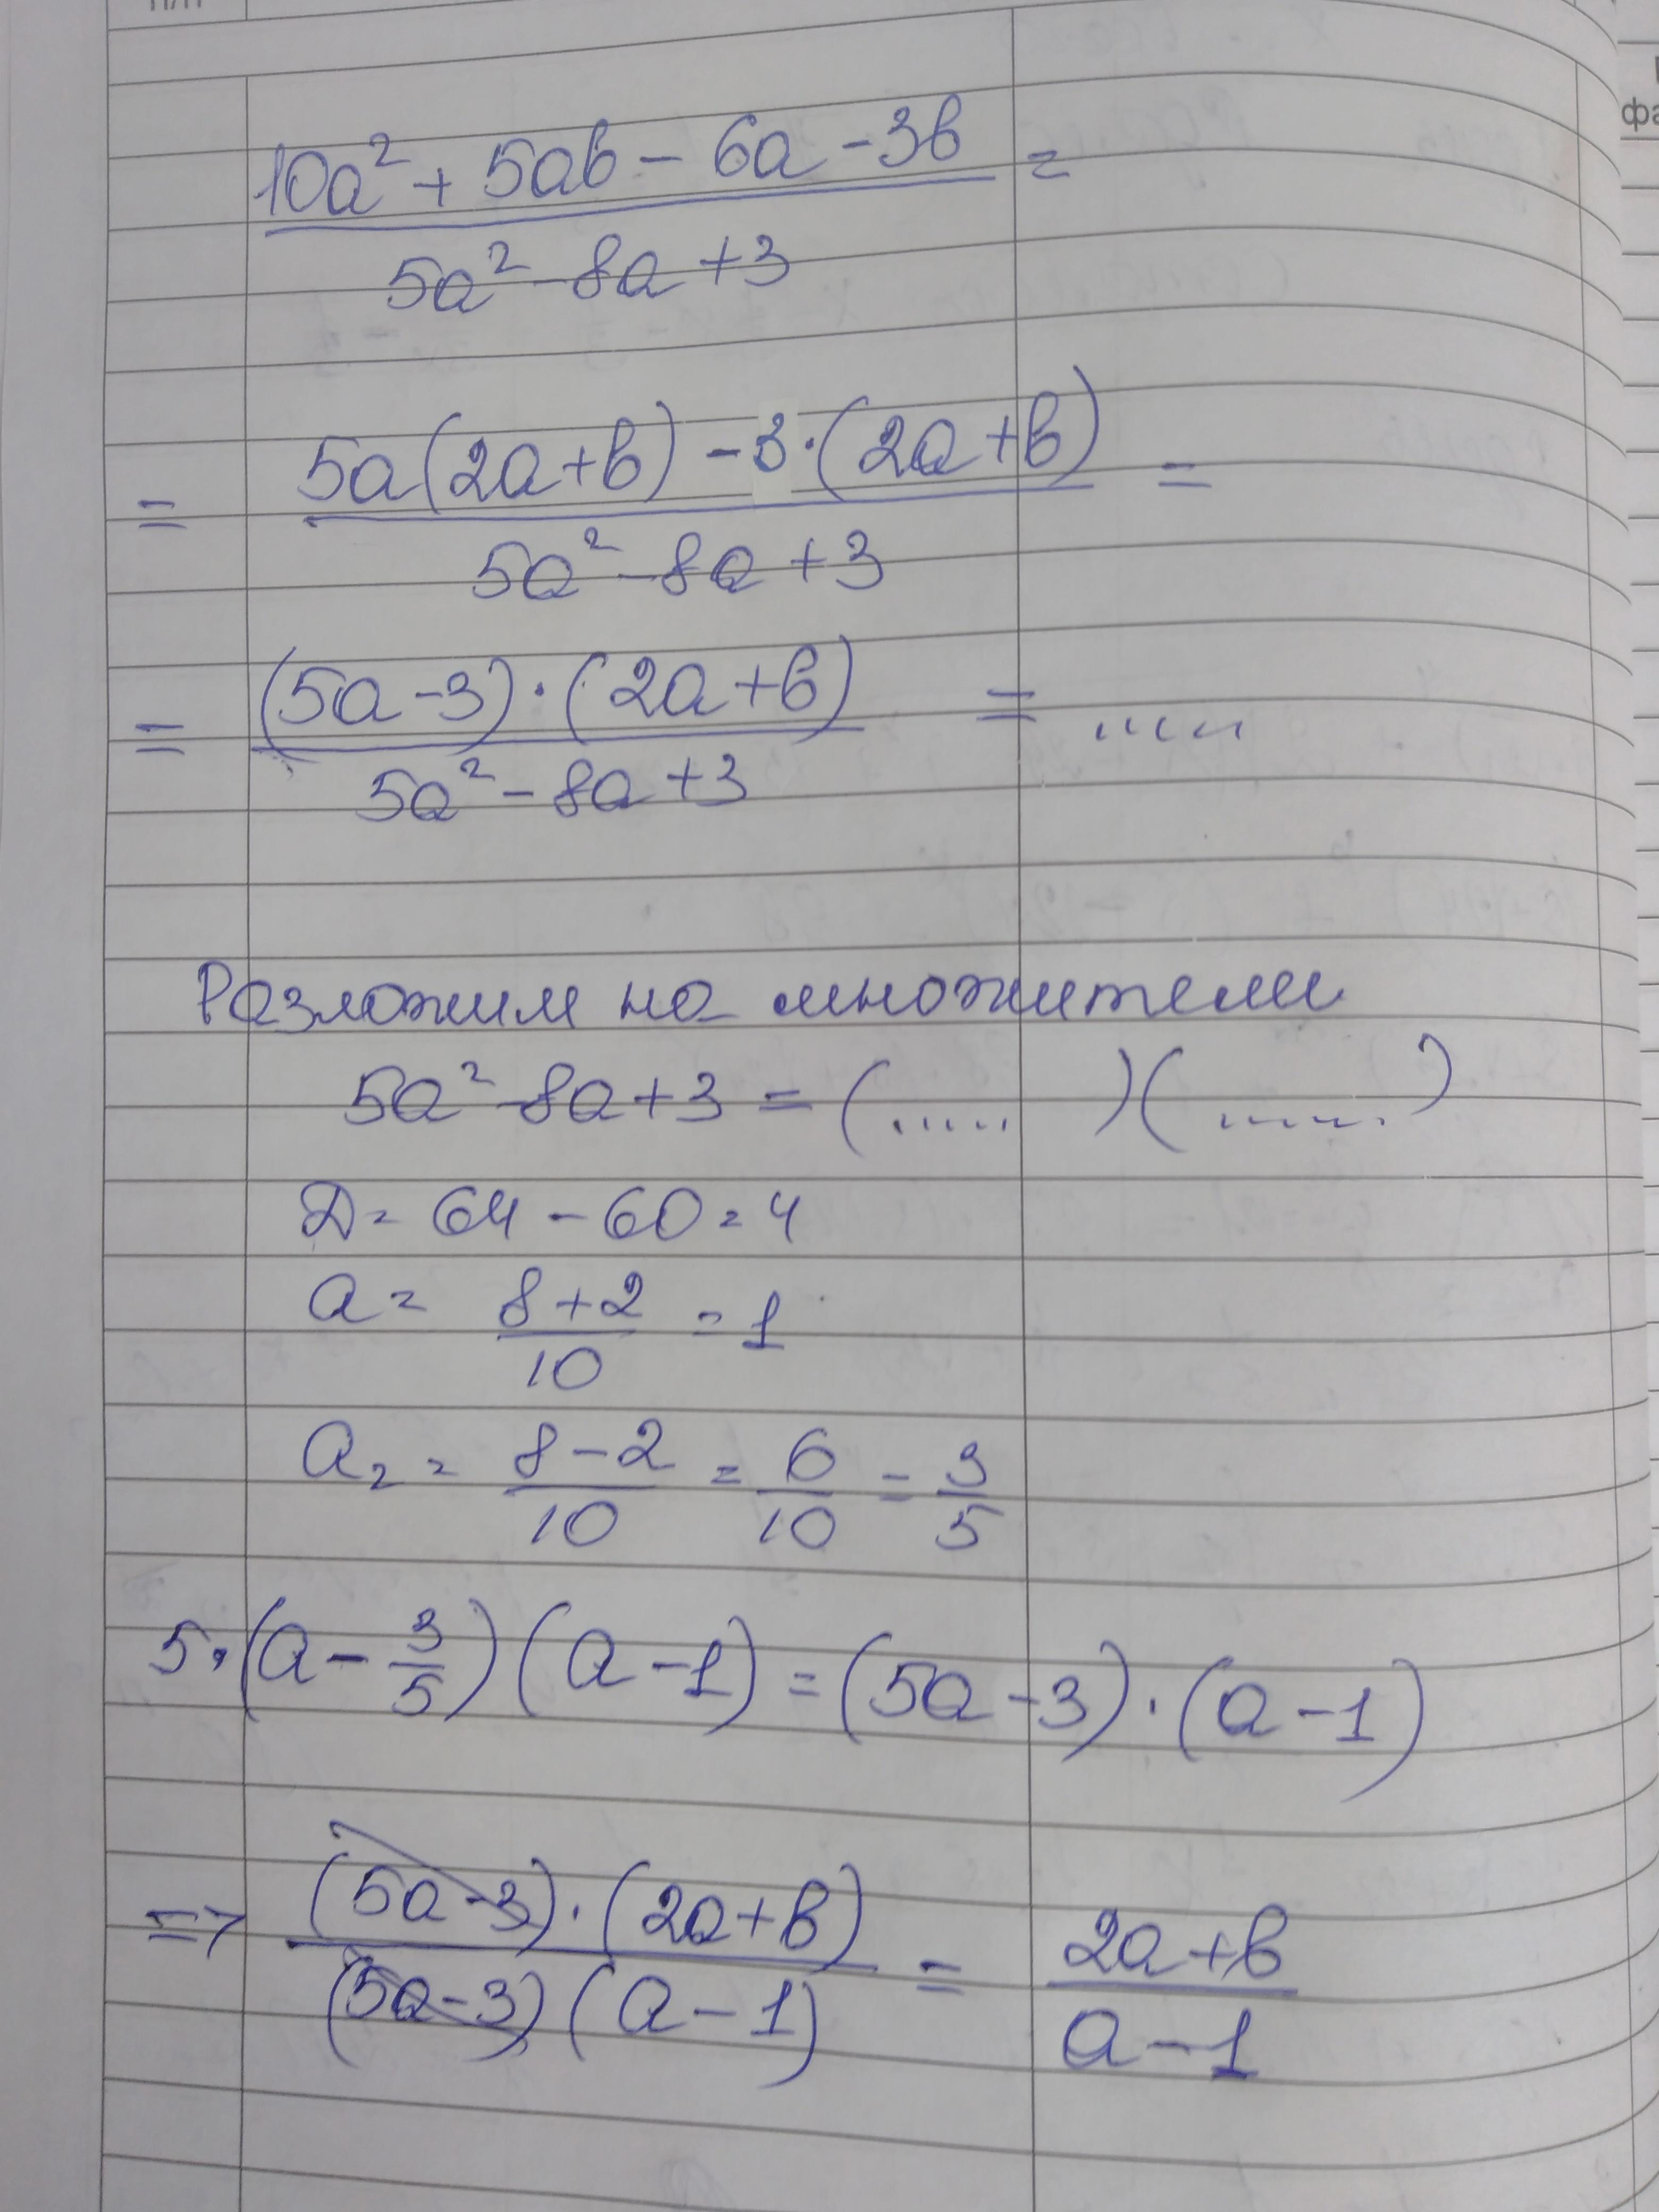 п/п
10a² + 5ab - 6a - 3b =
5a² - 8a + 3
= 5a(2a+b) - 3·(2a+b) =
5a² - 8a + 3
= (5a-3)·(2a+b) = .....
5a² - 8a + 3
Разложим на множители
5a² - 8a + 3 = (.....)(.....)
Д = 64 - 60 = 4
a = 8+2 = 1
10
a₂ = 8-2 = 6 = 3
10 10 5
5·(a - 3/5)(a-1) = (5a-3)·(a-1)
=> (5a-3)·(2a+b) = 2a+b
(5a-3)(a-1) a-1